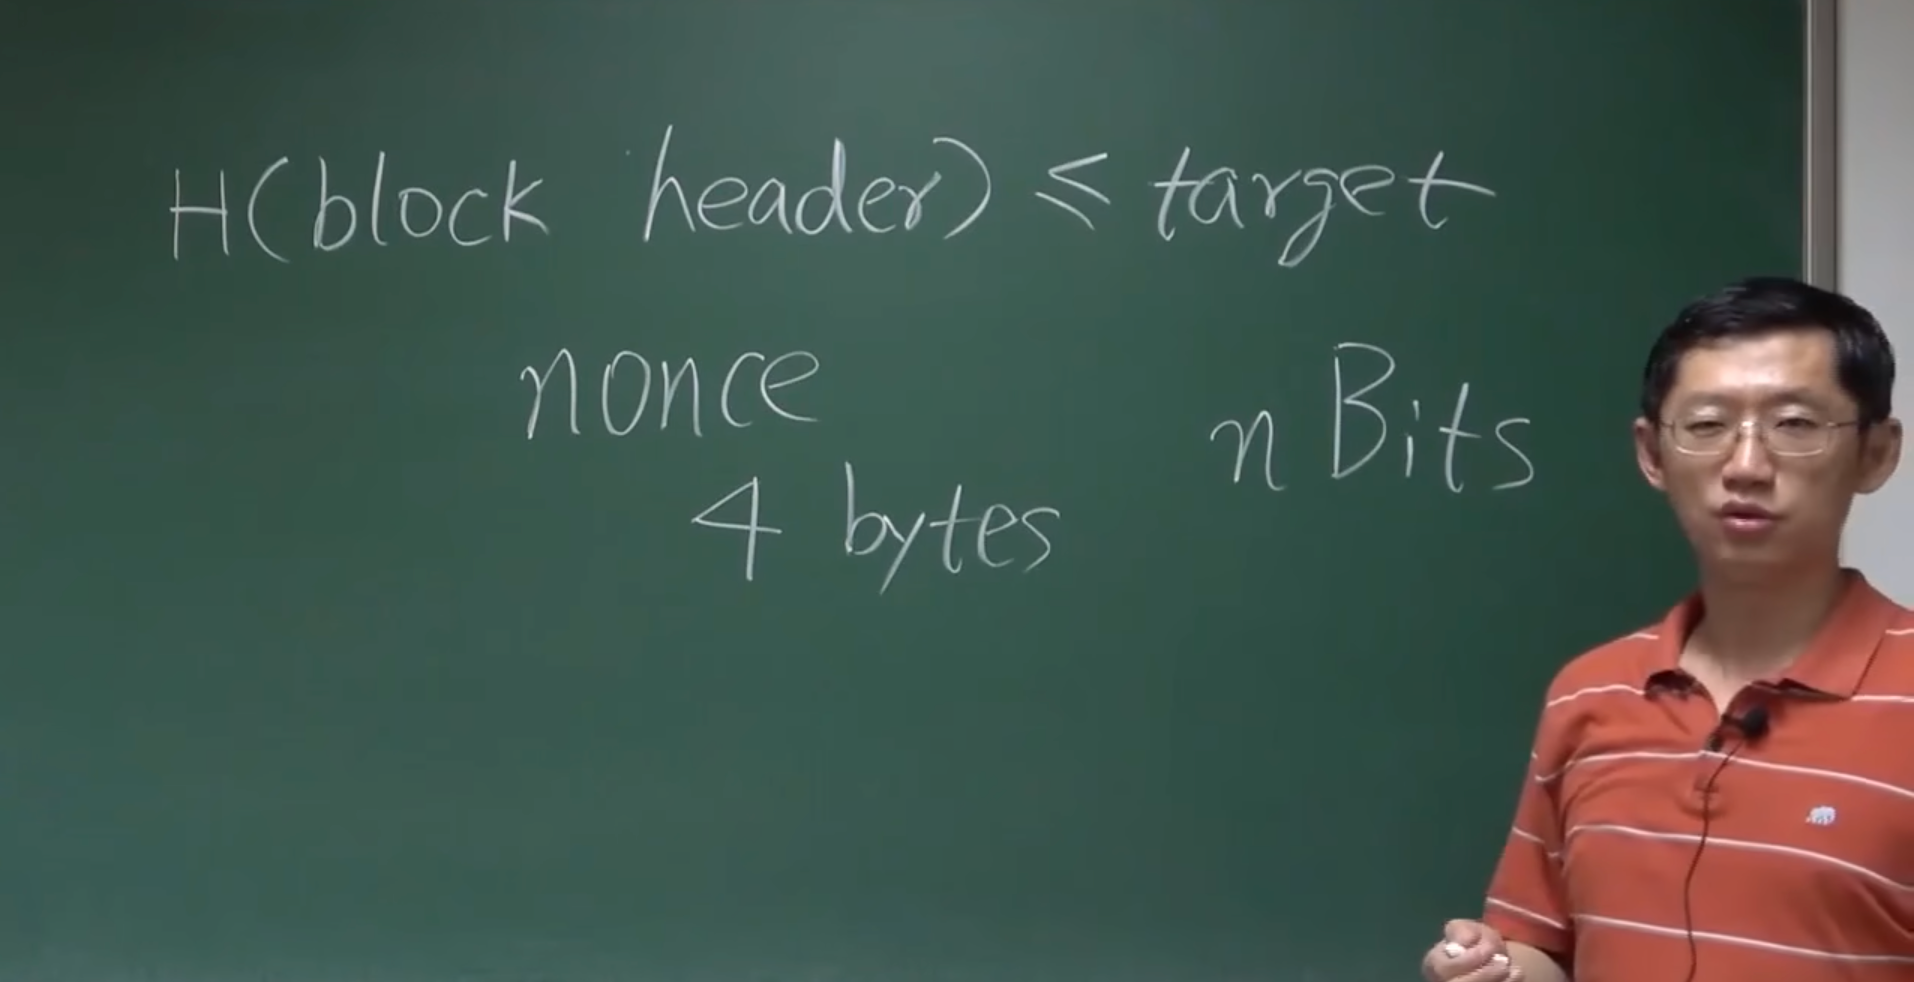 H(block header) ≤ target
nonce
nBits
4 bytes